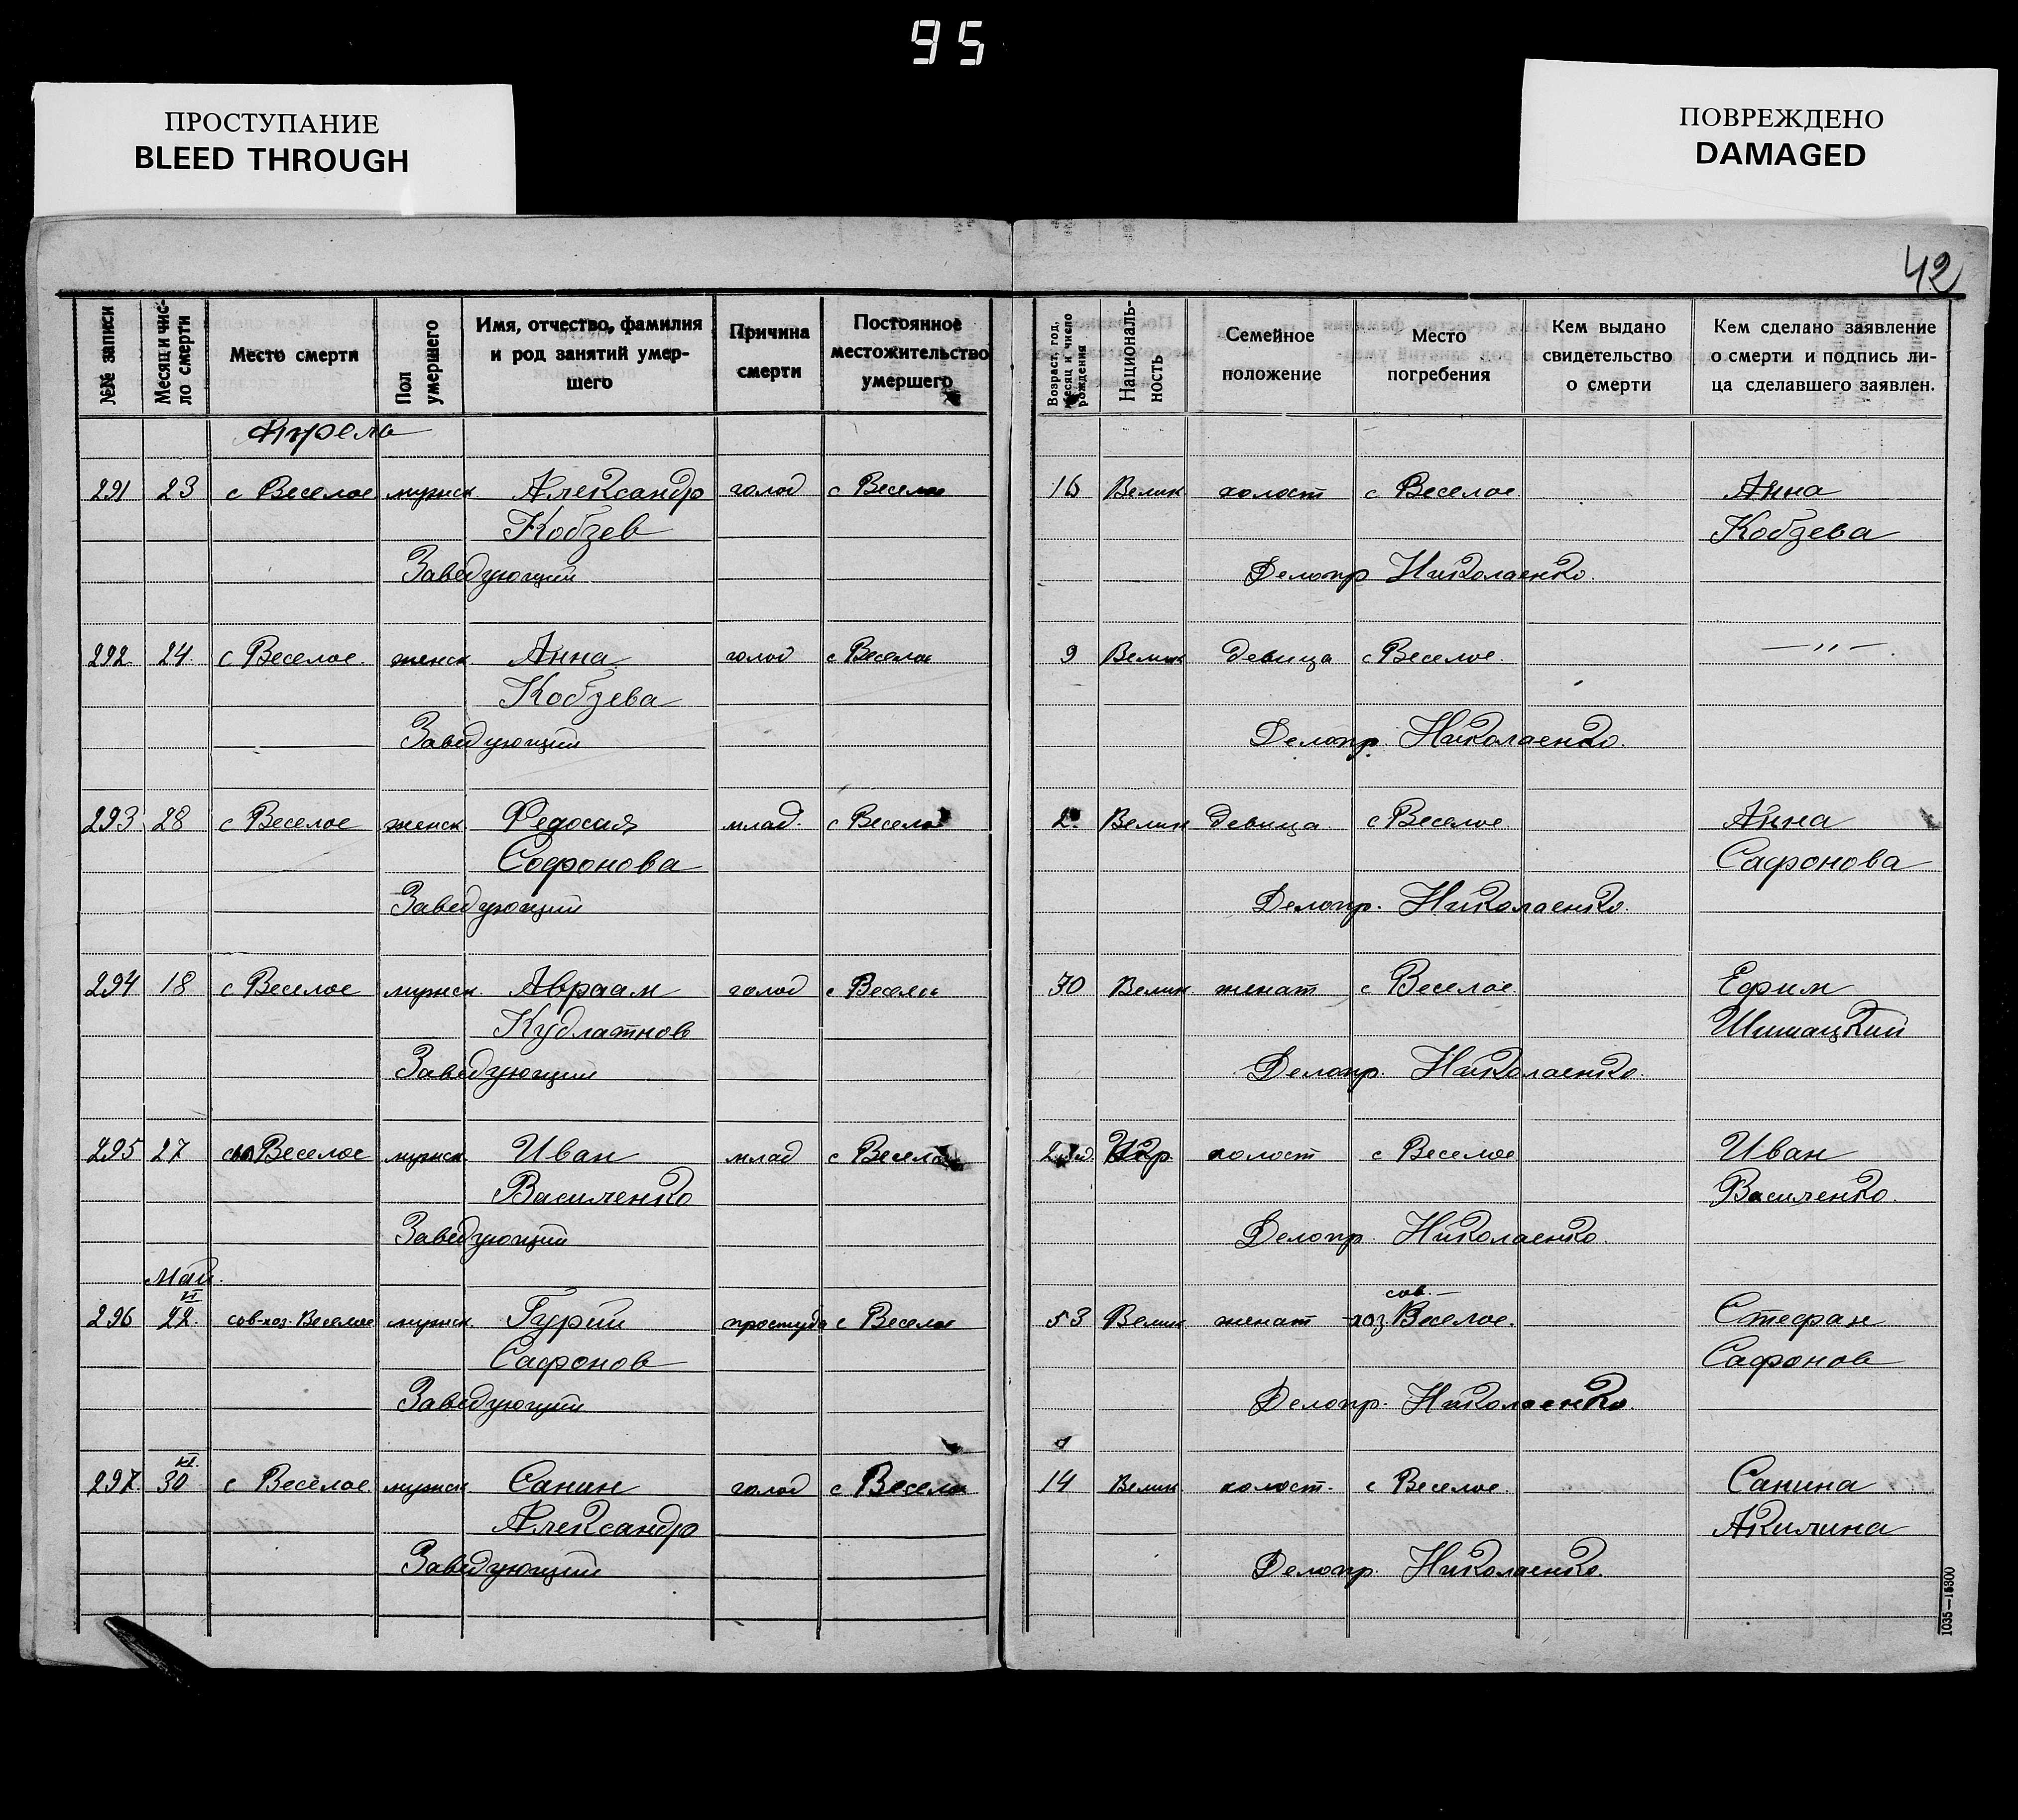 95
ПРОСТУПАНИЕ
BLEED THROUGH
ПОВРЕЖДЕНО
DAMAGED
42
№№ записи
Месяц и чис-
ло смерти
Место смерти
Пол
умершего
Имя, отчество, фамилия
и род занятий умер-
шего
Причина
смерти
Постоянное
местожительство
умершего
Возраст, год,
месяц и число
рождения
Националь-
ность
Семейное
положение
Место
погребения
Кем выдано
свидетельство
о смерти
Кем сделано заявление
о смерти и подпись ли-
ца сделавшего заявлен.
Апрель
291 23 с Веселое мужск. Александр голод с Веселое 16 Велик холост с Веселое Анна
Кобзев Кобзева
Заведующий Делопр Николаенко.
292 24. с Веселое. женск Анна голод с Веселое 9 Велик девица с Веселое. —〃—.
Кобзева
Заведующий Делопр. Николаенко.
293 28 с Веселое женск. Федосия млад. с Веселое 2. Велик девица с Веселое. Анна
Софонова Сафонова
Заведующий Делопр. Николаенко.
294 18 с Веселое мужск. Авраам голод с Веселое 30 Велик. женат с Веселое. Ефим
Кудлатнов Шишацкий
Заведующий Делопр. Николаенко.
295 27 Веселое мужск. Иван млад с Веселое Укр. холост с Веселое Иван
Василенко Василенко.
Заведующий Делопр. Николаенко.
Май.
VI
296 22. сов-хоз. Веселое мужск. Гурий простуда с Веселое 53 Велик. женат сов.-хоз Веселое. Стефан
Сафонов Сафонов
Заведующий Делопр. Николаенко.
VI.
297. 30 с Веселое мужск Санин голод с Веселое 14 Велик холост. с Веселое. Санина
Александр Акилина
Заведующий Делопр. Николаенко.
1035—15300